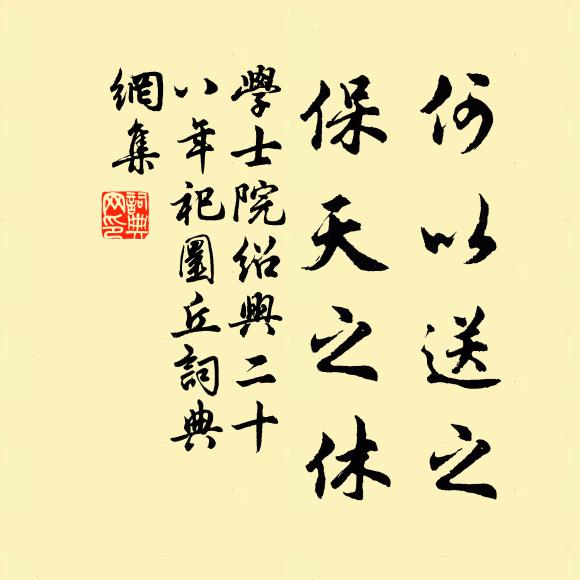 何以送之
保天之休
學士院紹興二十
八年祀圜丘詞典
網集
詞典網印